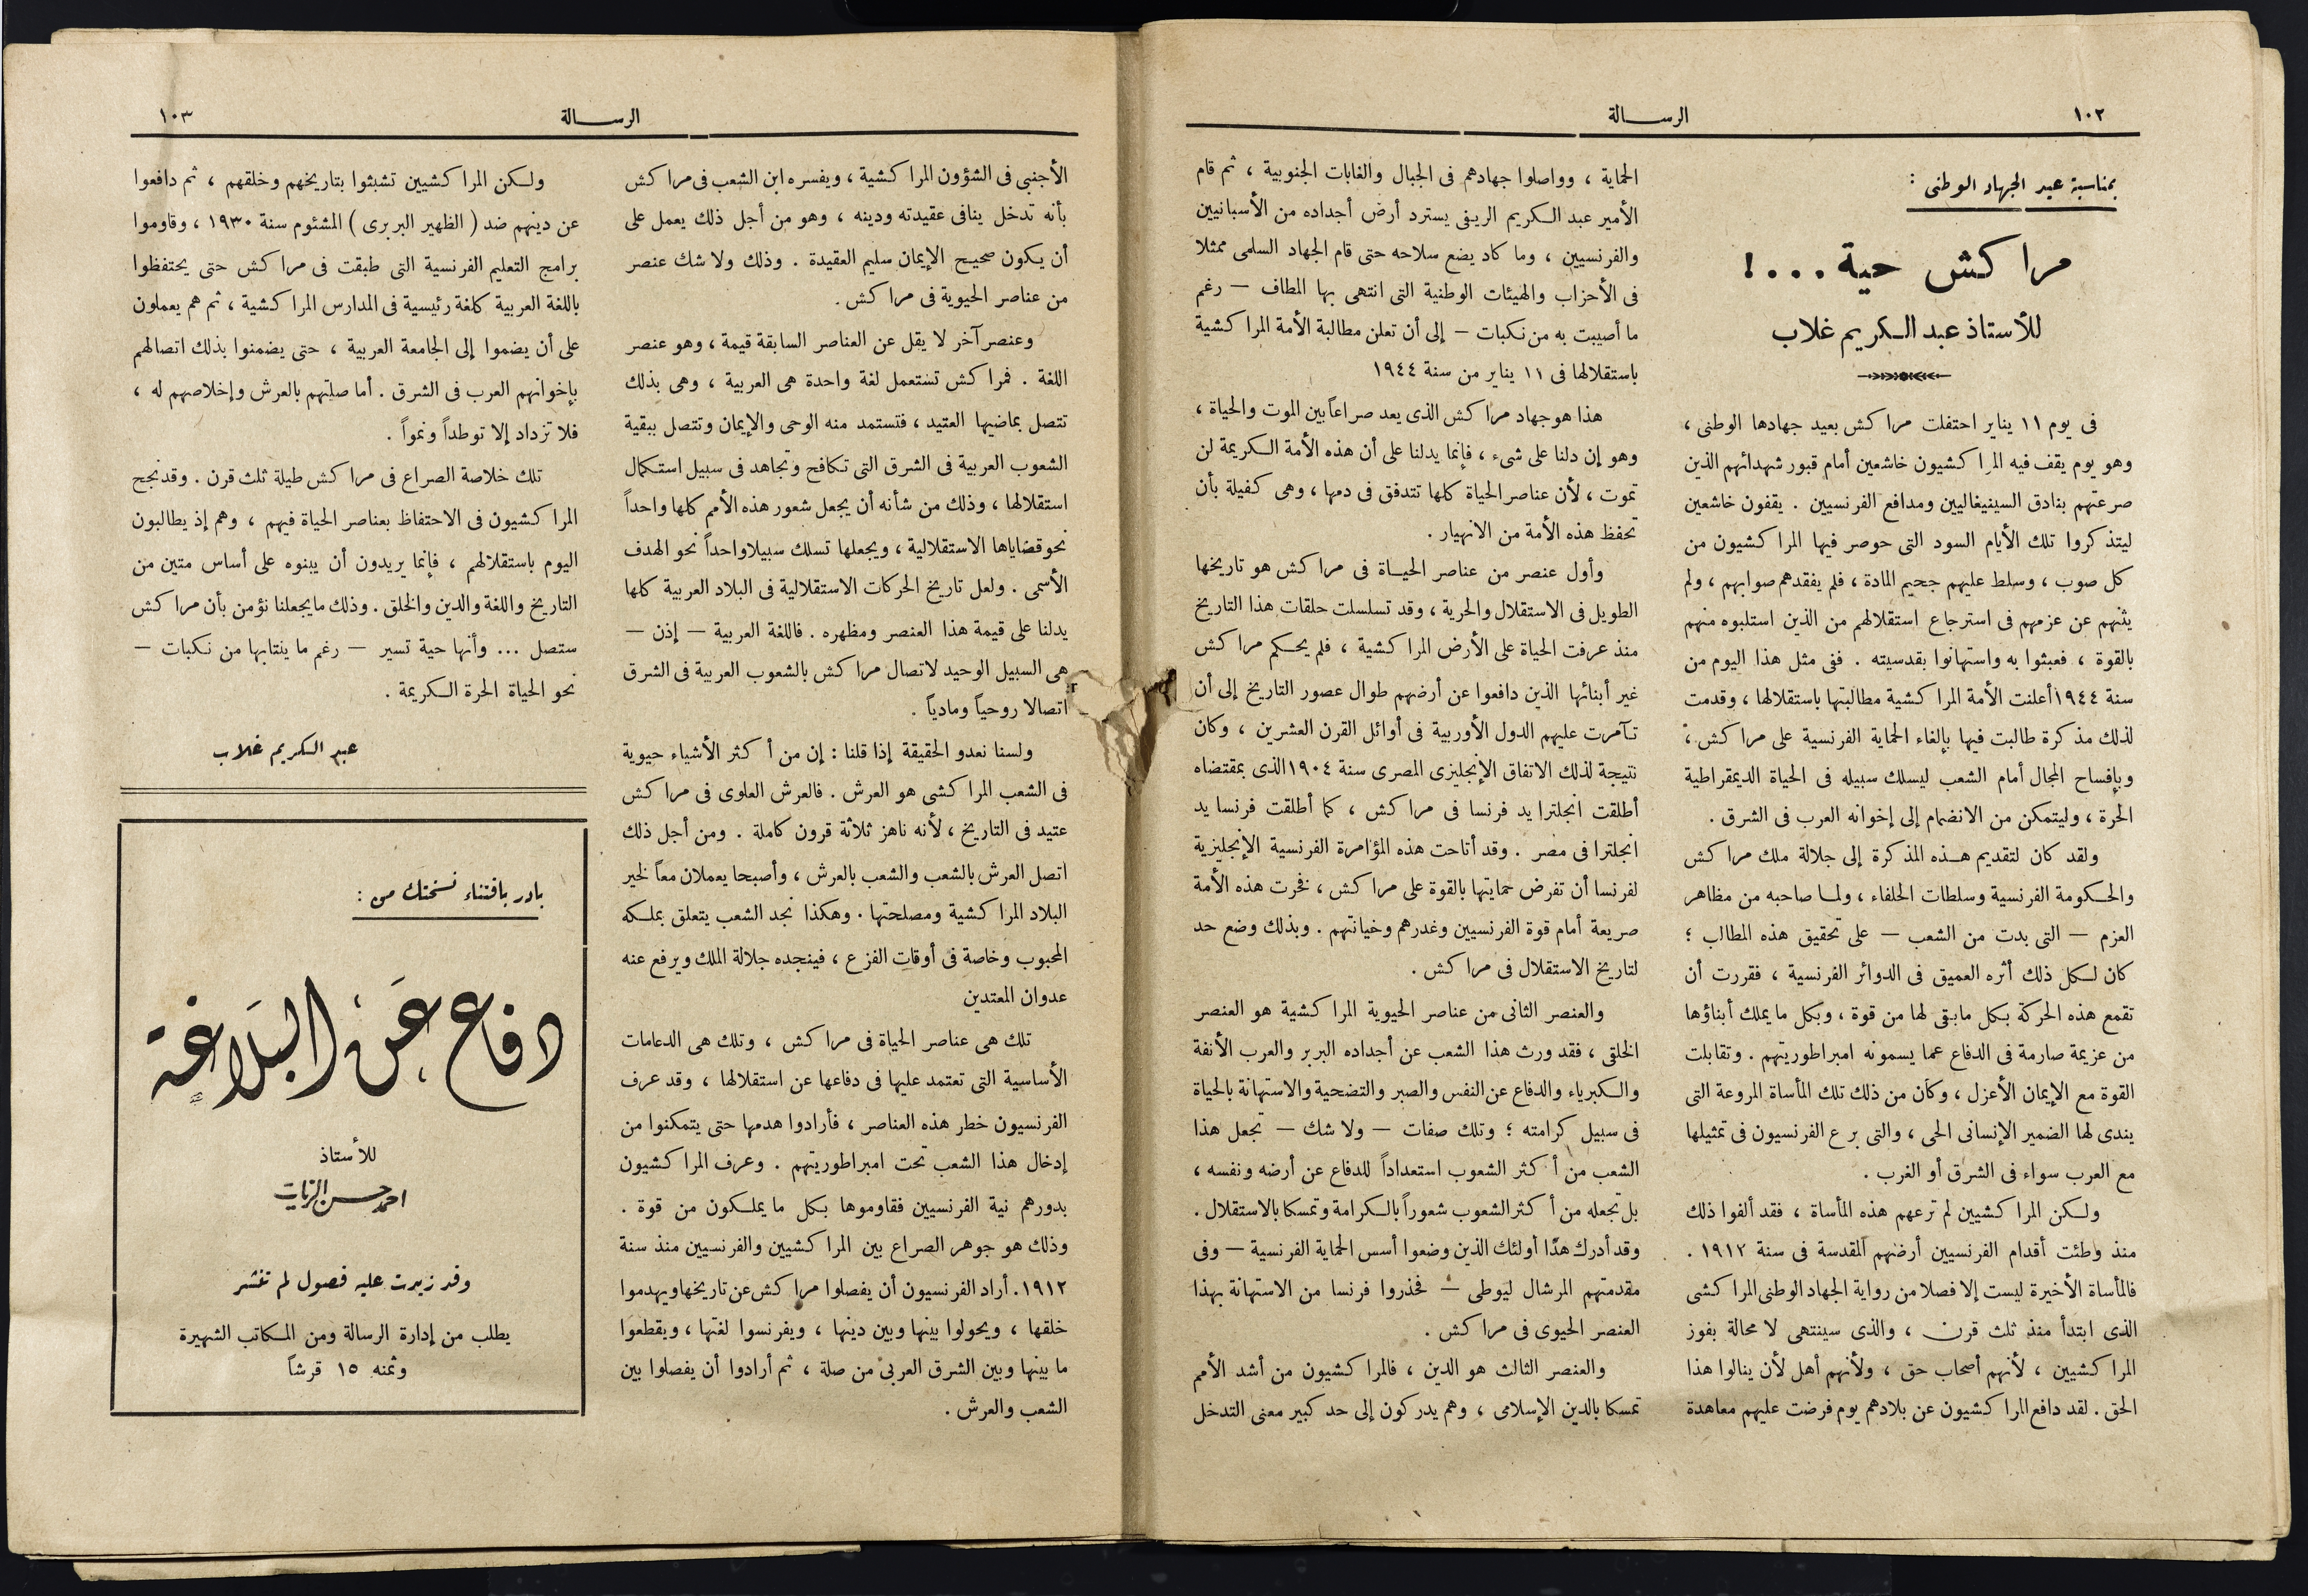 ١٠٢
الرسالة
بمناسبة عيد الجهاد الوطنى :
مراكش حية . . . !
للأستاذ عبد الكريم غلاب
فى يوم ١١ يناير احتفلت مراكش بعيد جهادها الوطنى ،
وهو يوم يقف فيه المراكشيون خاشعين أمام قبور شهدائهم الذين
صرعتهم بنادق السينيغاليين ومدافع الفرنسيين . يقفون خاشعين
ليتذكروا تلك الأيام السود التى حوصر فيها المراكشيون من
كل صوب ، وسلط عليهم جحيم المادة ، فلم يفقدهم صوابهم ، ولم
يثنهم عن عزمهم فى استرجاع استقلالهم من الذين استلبوه منهم
بالقوة ، فعبثوا به واستهانوا بقدسيته . ففى مثل هذا اليوم من
سنة ١٩٤٤ أعلنت الأمة المراكشية مطالبتها باستقلالها ، وقدمت
لذلك مذكرة طالبت فيها بإلغاء الحماية الفرنسية على مراكش ؛
وبإفساح المجال أمام الشعب ليسلك سبيله فى الحياة الديمقراطية
الحرة ، وليتمكن من الانضمام إلى إخوانه العرب فى الشرق .
ولقد كان لتقديم هذه المذكرة إلى جلالة ملك مراكش
والحكومة الفرنسية وسلطات الحلفاء ، ولما صاحبه من مظاهر
العزم — التى بدت من الشعب — على تحقيق هذه المطالب ؛
كان لكل ذلك أثره العميق فى الدوائر الفرنسية ، فقررت أن
تقمع هذه الحركة بكل ما بقى لها من قوة ، وبكل ما يملك أبناؤها
من عزيمة صارمة فى الدفاع عما يسمونه امبراطوريتهم . وتقابلت
القوة مع الإيمان الأعزل ، وكان من ذلك تلك المأساة المروعة التى
يندى لها الضمير الإنسانى الحى ، والتى برع الفرنسيون فى تمثيلها
مع العرب سواء فى الشرق أو الغرب .
ولكن المراكشيين لم ترعهم هذه المأساة ، فقد ألفوا ذلك
منذ وطئت أقدام الفرنسيين أرضهم المقدسة فى سنة ١٩١٢ .
فالمأساة الأخيرة ليست إلا فصلا من رواية الجهاد الوطنى المراكشى
الذى ابتدأ منذ ثلث قرن ، والذى سينتهى لا محالة بفوز
المراكشيين ، لأنهم أصحاب حق ، ولأنهم أهل لأن ينالوا هذا
الحق . لقد دافع المراكشيون عن بلادهم يوم فرضت عليهم معاهدة
الحماية ، وواصلوا جهادهم فى الجبال والغابات الجنوبية ، ثم قام
الأمير عبد الكريم الريفى يسترد أرض أجداده من الأسبانيين
والفرنسيين ، وما كاد يضع سلاحه حتى قام الجهاد السلمى ممثلا
فى الأحزاب والهيئات الوطنية التى انتهى بها المطاف — رغم
ما أصيبت به من نكبات — إلى أن تعلن مطالبة الأمة المراكشية
باستقلالها فى ١١ يناير من سنة ١٩٤٤
هذا هو جهاد مراكش الذى يعد صراعاً بين الموت والحياة ،
وهو إن دلنا على شىء ، فإنما يدلنا على أن هذه الأمة الكريمة لن
تموت ، لأن عناصر الحياة كلها تتدفق فى دمها ، وهى كفيلة بأن
تحفظ هذه الأمة من الانهيار .
وأول عنصر من عناصر الحياة فى مراكش هو تاريخها
الطويل فى الاستقلال والحرية ، وقد تسلسلت حلقات هذا التاريخ
منذ عرفت الحياة على الأرض المراكشية ، فلم يحكم مراكش
غير أبنائها الذين دافعوا عن أرضهم طوال عصور التاريخ إلى أن
تآمرت عليهم الدول الأوربية فى أوائل القرن العشرين ، وكان
نتيجة لذلك الاتفاق الإنجليزى المصرى سنة ١٩٠٤ الذى بمقتضاه
أطلقت انجلترا يد فرنسا فى مراكش ، كما أطلقت فرنسا يد
انجلترا فى مصر . وقد أتاحت هذه المؤامرة الفرنسية الإنجليزية
لفرنسا أن تفرض حمايتها بالقوة على مراكش ، فخرت هذه الأمة
صريعة أمام قوة الفرنسيين وغدرهم وخيانتهم . وبذلك وضع حد
لتاريخ الاستقلال فى مراكش .
والعنصر الثانى من عناصر الحيوية المراكشية هو العنصر
الخلقى ، فقد ورث هذا الشعب عن أجداده البربر والعرب الأنفة
والكبرياء والدفاع عن النفس والصبر والتضحية والاستهانة بالحياة
فى سبيل كرامته ؛ وتلك صفات — ولا شك — تجعل هذا
الشعب من أكثر الشعوب استعداداً للدفاع عن أرضه ونفسه ،
بل تجعله من أكثر الشعوب شعوراً بالكرامة وتمسكا بالاستقلال .
وقد أدرك هذا أولئك الذين وضعوا أسس الحماية الفرنسية — وفى
مقدمتهم المرشال ليوطى — فحذروا فرنسا من الاستهانة بهذا
العنصر الحيوى فى مراكش .
والعنصر الثالث هو الدين ، فالمراكشيون من أشد الأمم
تمسكا بالدين الإسلامى ، وهم يدركون إلى حد كبير معنى التدخل
الرسالة
١٠٣
الأجنبى فى الشؤون المراكشية ، ويفسره ابن الشعب فى مراكش
بأنه تدخل ينافى عقيدته ودينه ، وهو من أجل ذلك يعمل على
أن يكون صحيح الإيمان سليم العقيدة . وذلك ولا شك عنصر
من عناصر الحيوية فى مراكش .
وعنصر آخر لا يقل عن العناصر السابقة قيمة ، وهو عنصر
اللغة . فمراكش تستعمل لغة واحدة هى العربية ، وهى بذلك
تتصل بماضيها العتيد ، فتستمد منه الوحى والإيمان وتتصل ببقية
الشعوب العربية فى الشرق التى تكافح وتجاهد فى سبيل استكمال
استقلالها ، وذلك من شأنه أن يجعل شعور هذه الأمم كلها واحداً
نحو قضاياها الاستقلالية ، ويجعلها تسلك سبيلا واحداً نحو الهدف
الأسمى . ولعل تاريخ الحركات الاستقلالية فى البلاد العربية كلها
يدلنا على قيمة هذا العنصر ومظهره . فاللغة العربية — إذن —
هى السبيل الوحيد لاتصال مراكش بالشعوب العربية فى الشرق
اتصالا روحياً ومادياً .
ولسنا نعدو الحقيقة إذا قلنا : إن من أكثر الأشياء حيوية
فى الشعب المراكشى هو العرش . فالعرش العلوى فى مراكش
عتيد فى التاريخ ، لأنه ناهز ثلاثة قرون كاملة . ومن أجل ذلك
اتصل العرش بالشعب والشعب بالعرش ، وأصبحا يعملان معاً لخير
البلاد المراكشية ومصلحتها . وهكذا نجد الشعب يتعلق بملكه
المحبوب وخاصة فى أوقات الفزع ، فينجده جلالة الملك ويرفع عنه
عدوان المعتدين
تلك هى عناصر الحياة فى مراكش ، وتلك هى الدعامات
الأساسية التى تعتمد عليها فى دفاعها عن استقلالها ، وقد عرف
الفرنسيون خطر هذه العناصر ، فأرادوا هدمها حتى يتمكنوا من
إدخال هذا الشعب تحت امبراطوريتهم . وعرف المراكشيون
بدورهم نية الفرنسيين فقاوموها بكل ما يملكون من قوة .
وذلك هو جوهر الصراع بين المراكشيين والفرنسيين منذ سنة
١٩١٢ . أراد الفرنسيون أن يفصلوا مراكش عن تاريخها ويهدموا
خلقها ، ويحولوا بينها وبين دينها ، ويفرنسوا لغتها ، ويقطعوا
ما بينها وبين الشرق العربى من صلة ، ثم أرادوا أن يفصلوا بين
الشعب والعرش .
ولكن المراكشيين تشبثوا بتاريخهم وخلقهم ، ثم دافعوا
عن دينهم ضد ( الظهير البربرى ) المشئوم سنة ١٩٣٠ ، وقاوموا
برامج التعليم الفرنسية التى طبقت فى مراكش حتى يحتفظوا
باللغة العربية كلغة رئيسية فى المدارس المراكشية ، ثم هم يعملون
على أن يضموا إلى الجامعة العربية ، حتى يضمنوا بذلك اتصالهم
بإخوانهم العرب فى الشرق . أما صلتهم بالعرش وإخلاصهم له ،
فلا تزداد إلا توطداً ونمواً .
تلك خلاصة الصراع فى مراكش طيلة ثلث قرن . وقد نجح
المراكشيون فى الاحتفاظ بعناصر الحياة فيهم ، وهم إذ يطالبون
اليوم باستقلالهم ، فإنما يريدون أن يبنوه على أساس متين من
التاريخ واللغة والدين والخلق . وذلك ما يجعلنا نؤمن بأن مراكش
ستصل ... وأنها حية تسير — رغم ما ينتابها من نكبات —
نحو الحياة الحرة الكريمة .
عبد الكريم غلاب
بادر باقتناء نسختك من :
دفاع عَن البَلاغة
للأستاذ
احمد حسن الزيات
وقد زيدت عليه فصول لم تنشر
يطلب من إدارة الرسالة ومن المكاتب الشهيرة
وثمنه ١٥ قرشاً